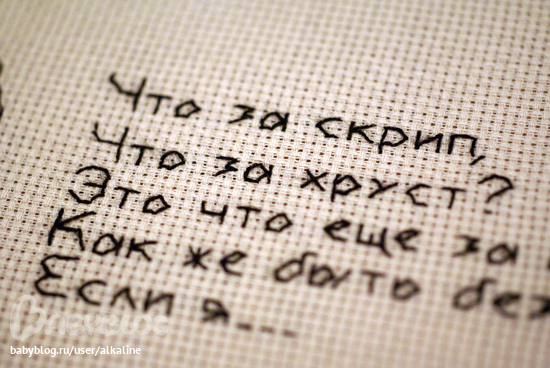 Что за скрип,
Что за хруст?
Это что еще за
Как же быть без
Если я...
Babyblog
babyblog.ru/user/alkaline